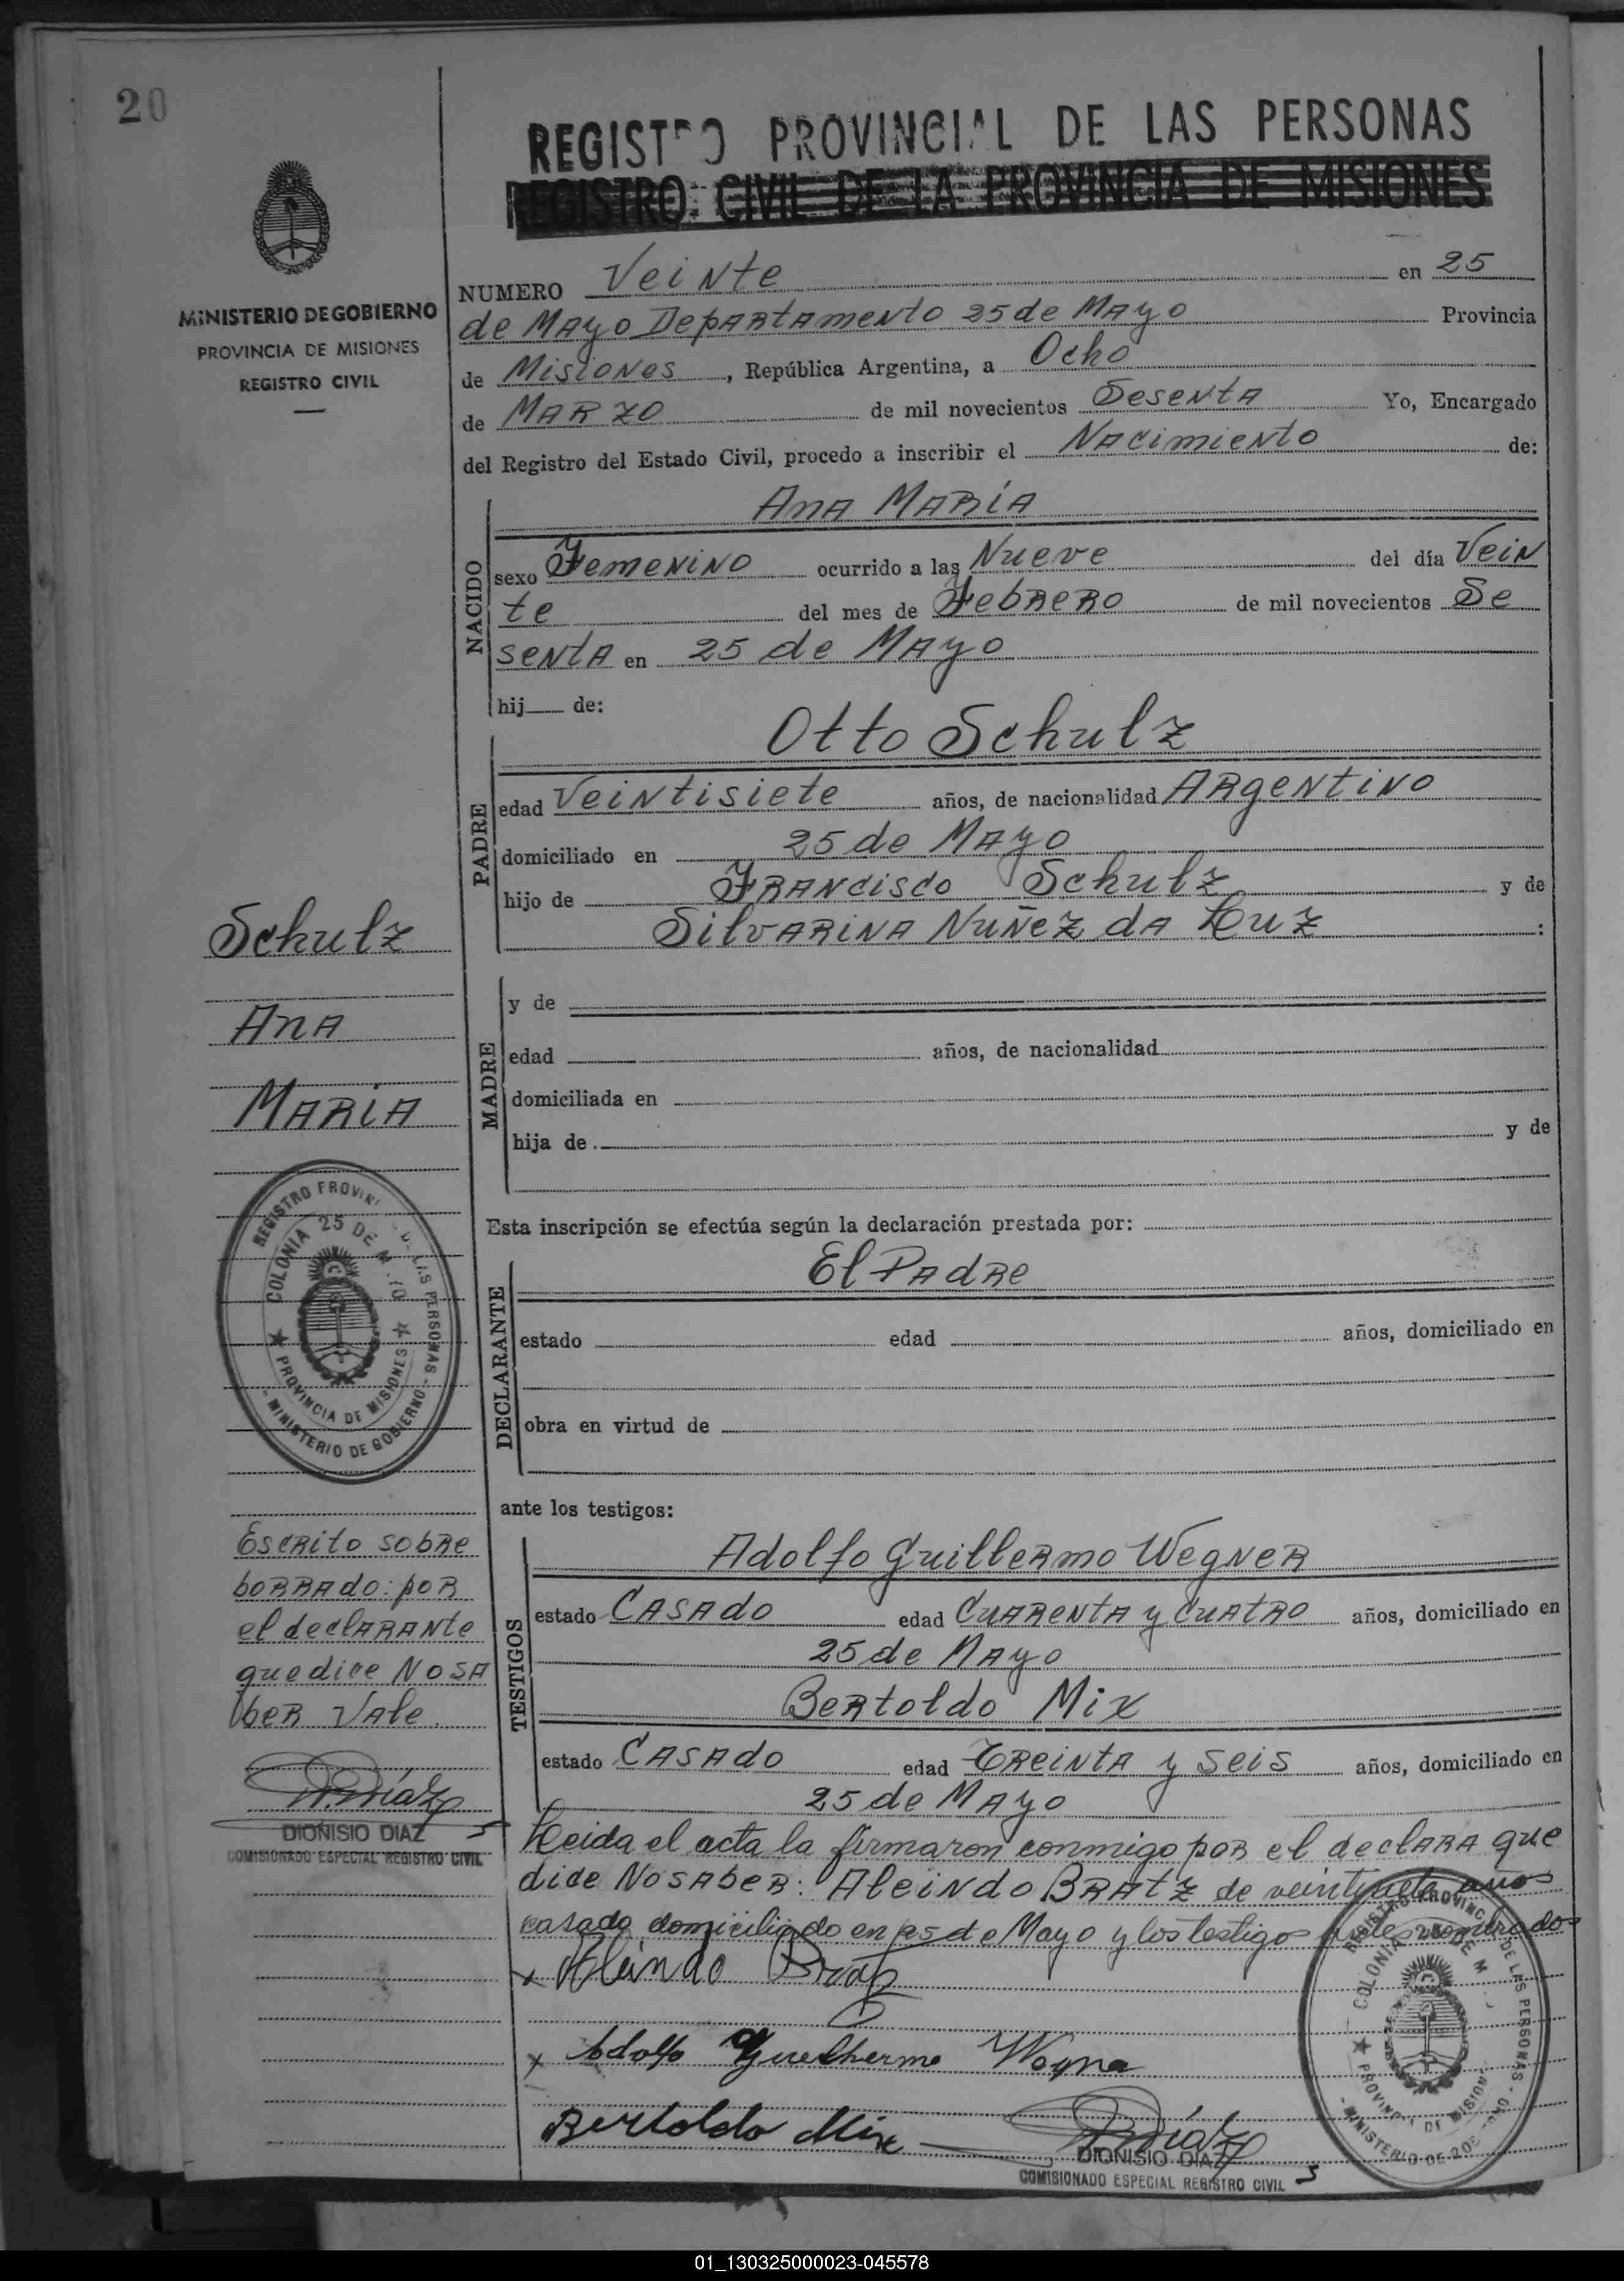 20
REGISTRO PROVINCIAL DE LAS PERSONAS
REGISTRO CIVIL DE LA PROVINCIA DE MISIONES
MINISTERIO DE GOBIERNO
PROVINCIA DE MISIONES
REGISTRO CIVIL
NUMERO Veinte en 25
de Mayo Departamento 25 de Mayo Provincia
de Misiones, República Argentina, a Ocho
de Marzo de mil novecientos Sesenta Yo, Encargado
del Registro del Estado Civil, procedo a inscribir el Nacimiento de:
NACIDO
Ana María
sexo Femenino ocurrido a las Nueve del día Vein
te del mes de Febrero de mil novecientos Se
senta en 25 de Mayo
hij de:
PADRE
Otto Schulz
edad Veintisiete años, de nacionalidad Argentino
domiciliado en 25 de Mayo
hijo de Francisco Schulz y de
Silvarina Nuñez da Luz :
Schulz
Ana
María
MADRE
y de
edad años, de nacionalidad
domiciliada en
hija de y de
REGISTRO PROVINCIAL DE LAS PERSONAS
COLONIA 25 DE MAYO
PROVINCIA DE MISIONES
- MINISTERIO DE GOBIERNO -
Esta inscripción se efectúa según la declaración prestada por:
DECLARANTE
El Padre
estado edad años, domiciliado en
obra en virtud de
ante los testigos:
TESTIGOS
Adolfo Guillermo Wegner
estado Casado edad Cuarenta y Cuatro años, domiciliado en
25 de Mayo
Bertoldo Mix
estado Casado edad Treinta y Seis años, domiciliado en
25 de Mayo
Escrito sobre
borrado: por
el declarante
que dice No sa
ber Vale.
D. Díaz
DIONISIO DIAZ
COMISIONADO ESPECIAL REGISTRO CIVIL
Leida el acta la firmaron conmigo por el declara que
dice No saber: Aleindo Bratz de veintisiete años
casado domiciliado en 25 de Mayo y los testigos antes nombrados
x Aleindo Bratz
x Adolfo Guilherme Wegner
Bertoldo Mix
D. Díaz
DIONISIO DIAZ
COMISIONADO ESPECIAL REGISTRO CIVIL
REGISTRO PROVINCIAL DE LAS PERSONAS
COLONIA 25 DE MAYO
PROVINCIA DE MISIONES
- MINISTERIO DE GOBIERNO -
01_130325000023-045578